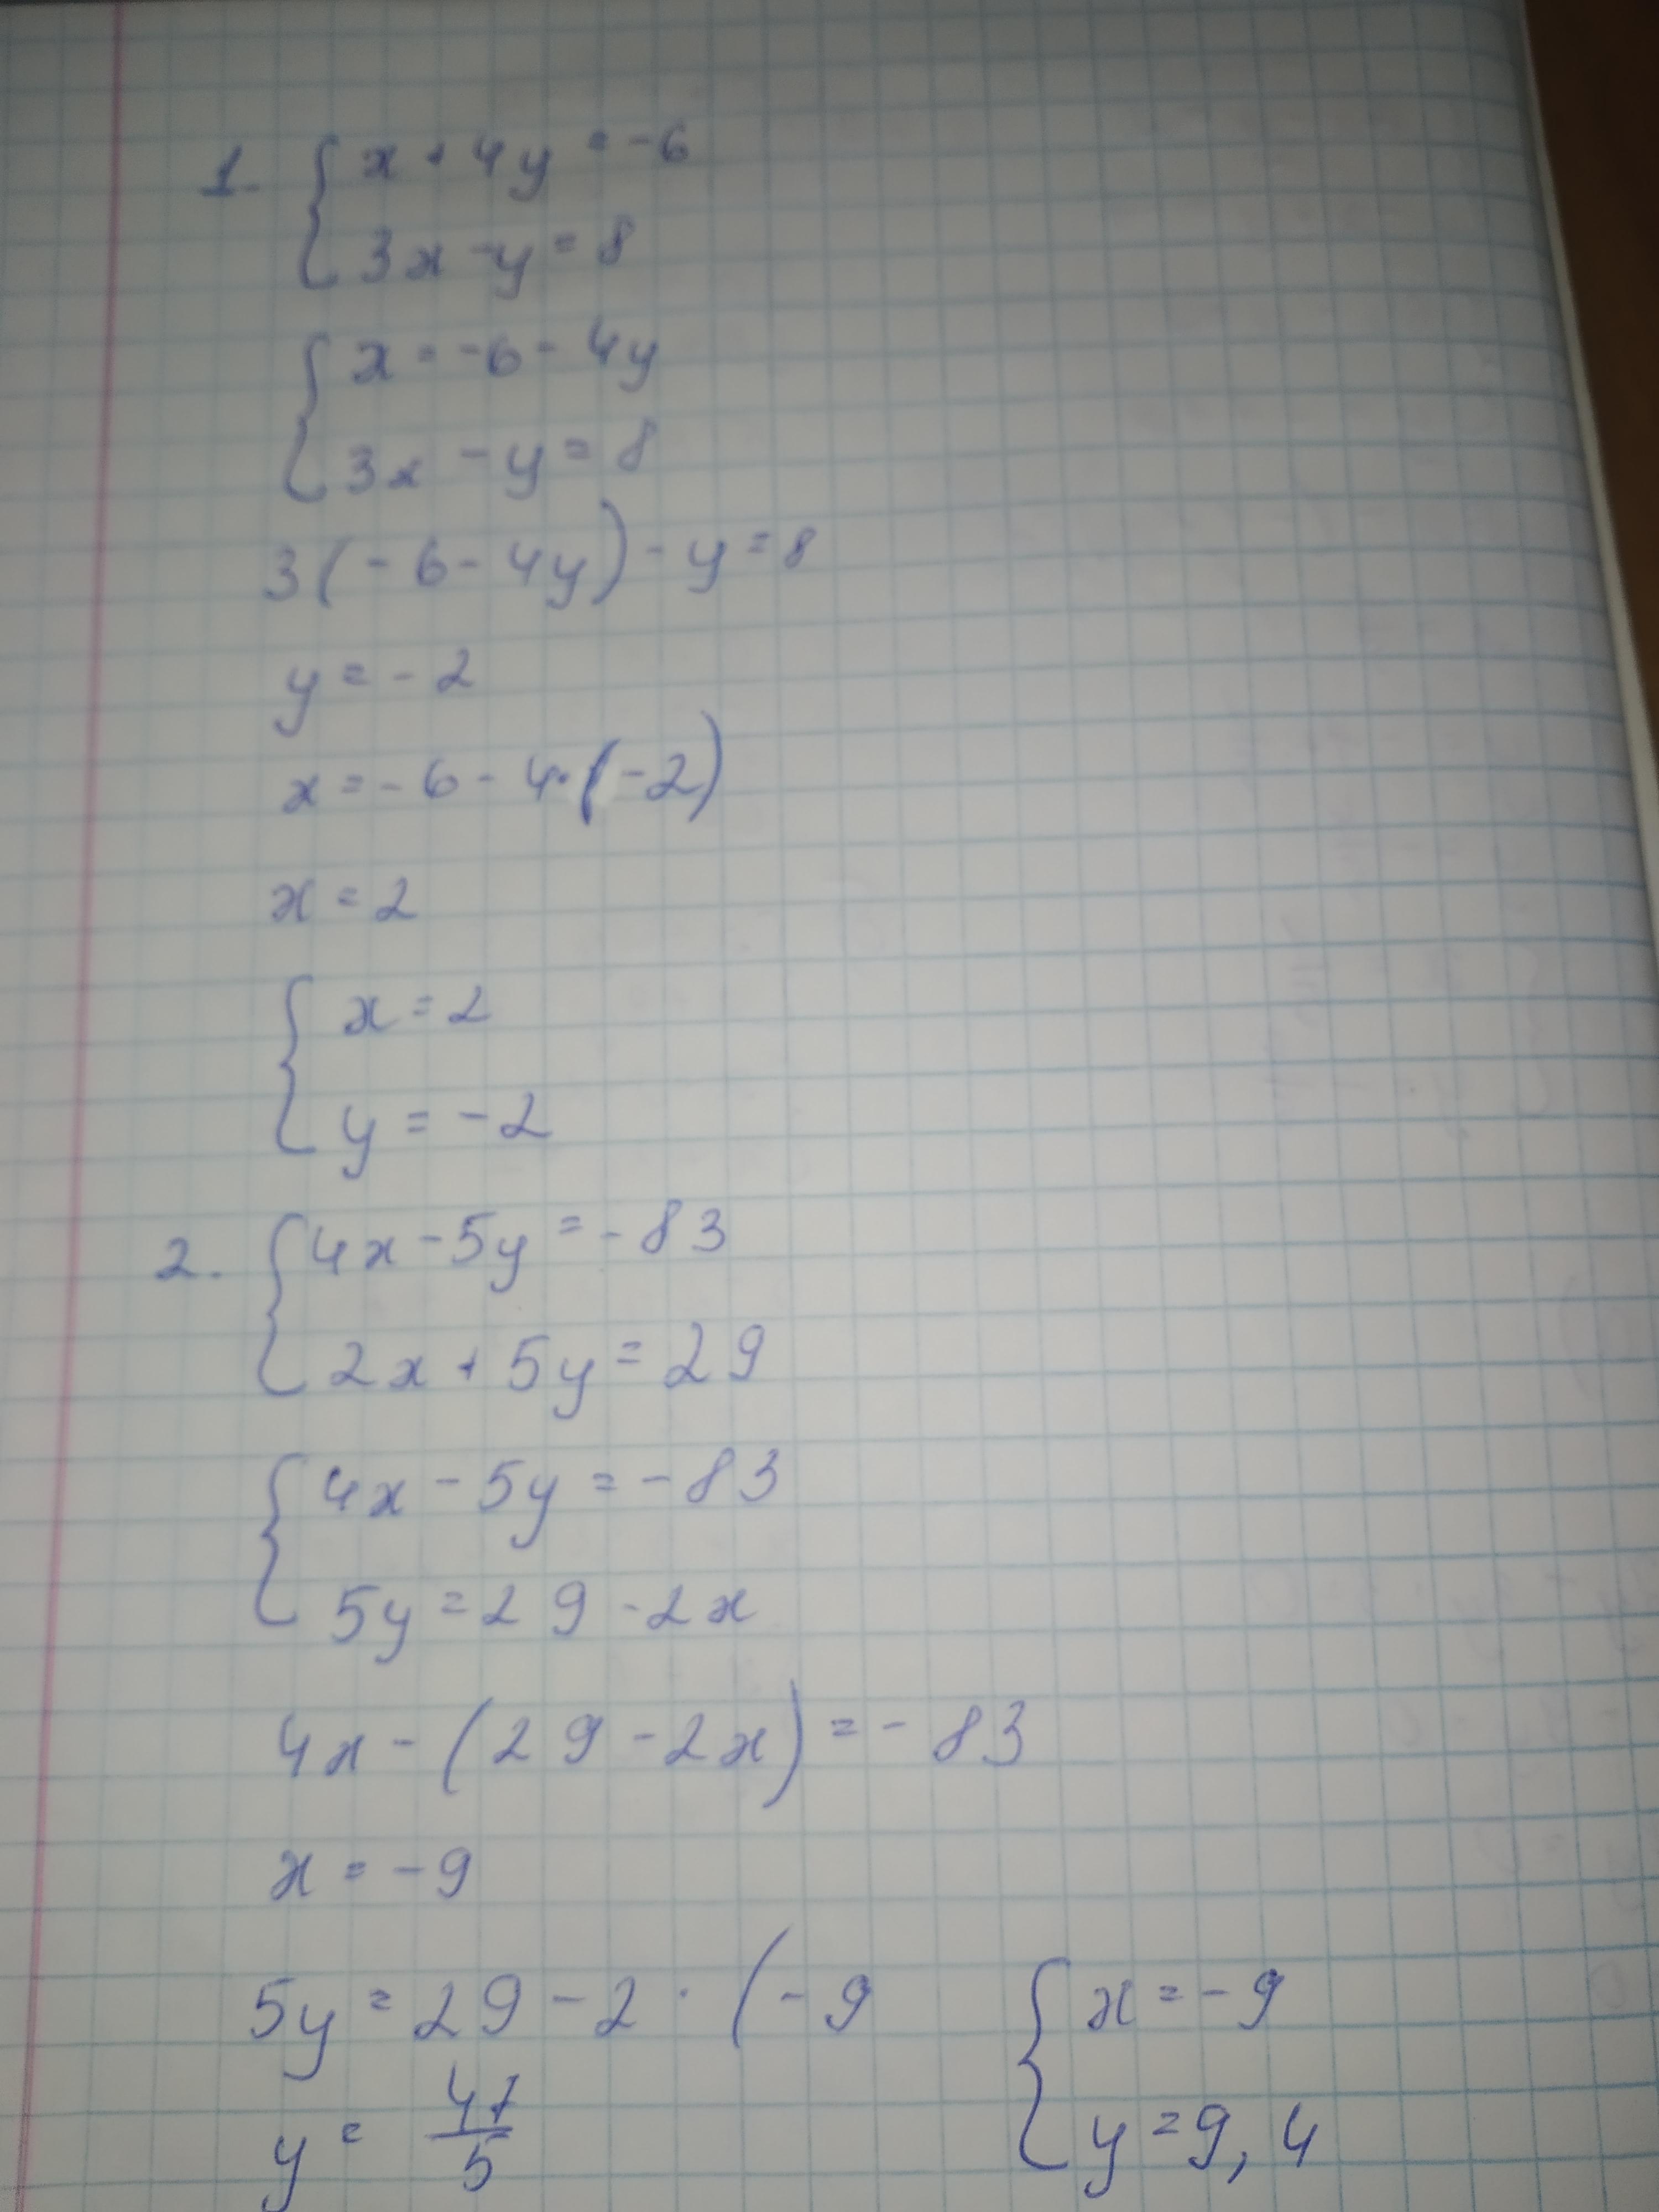 1. { x + 4y = -6
3x - y = 8
{ x = -6 - 4y
3x - y = 8
3(-6 - 4y) - y = 8
y = -2
x = -6 - 4·(-2)
x = 2
{ x = 2
y = -2
2. { 4x - 5y = -83
2x + 5y = 29
{ 4x - 5y = -83
5y = 29 - 2x
4x - (29 - 2x) = -83
x = -9
5y = 29 - 2 · (-9
y = 47/5
{ x = -9
y = 9,4